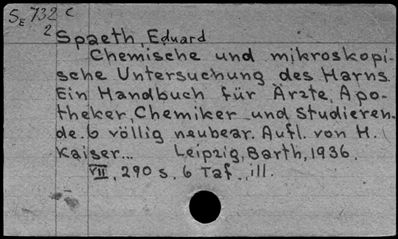 SE 732 c
2
Spaeth, Eduard
Chemische und mikroskopi-
sche Untersuchung des Harns.
Ein Handbuch für Ärzte, Apo-
theker, Chemiker und Studieren-
de. 6 völlig neubear. Aufl. von H.
Kaiser... Leipzig, Barth, 1936.
VII, 290 s. 6 Taf. ill.